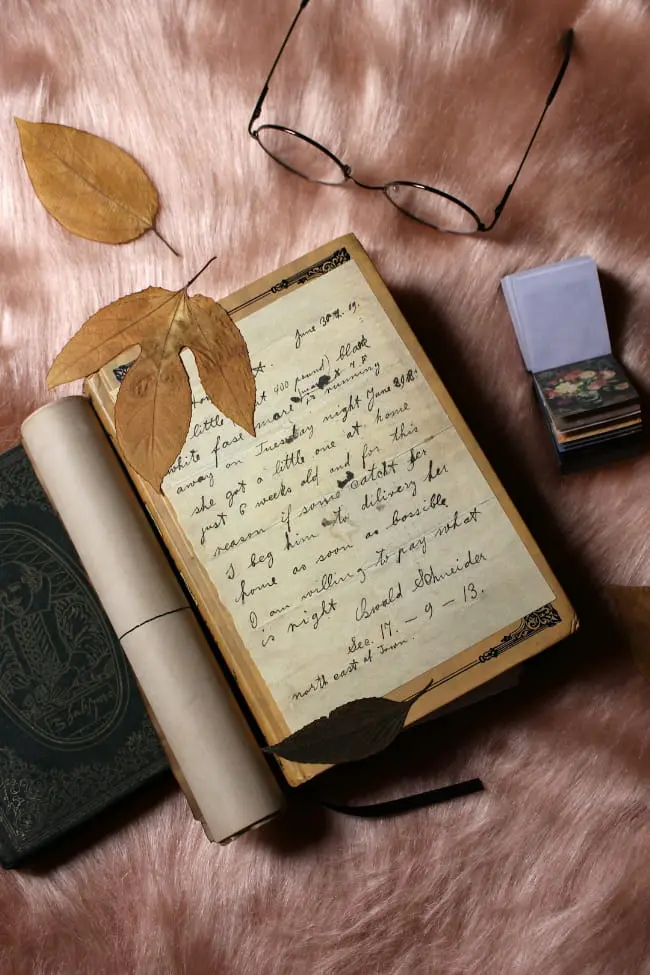 June 30th. 19.
little 400 pound) black
white fase mare is running
away on Tuesday night June 29th.
she got a little one at home
just 6 weeks old and for this
reason if some catcht her
I beg him to dilivery her
home as soon as bossible
I am willing to pay what
is right Oswald Schneider
Sec. 17. – 9 – 13.
north east of Town.